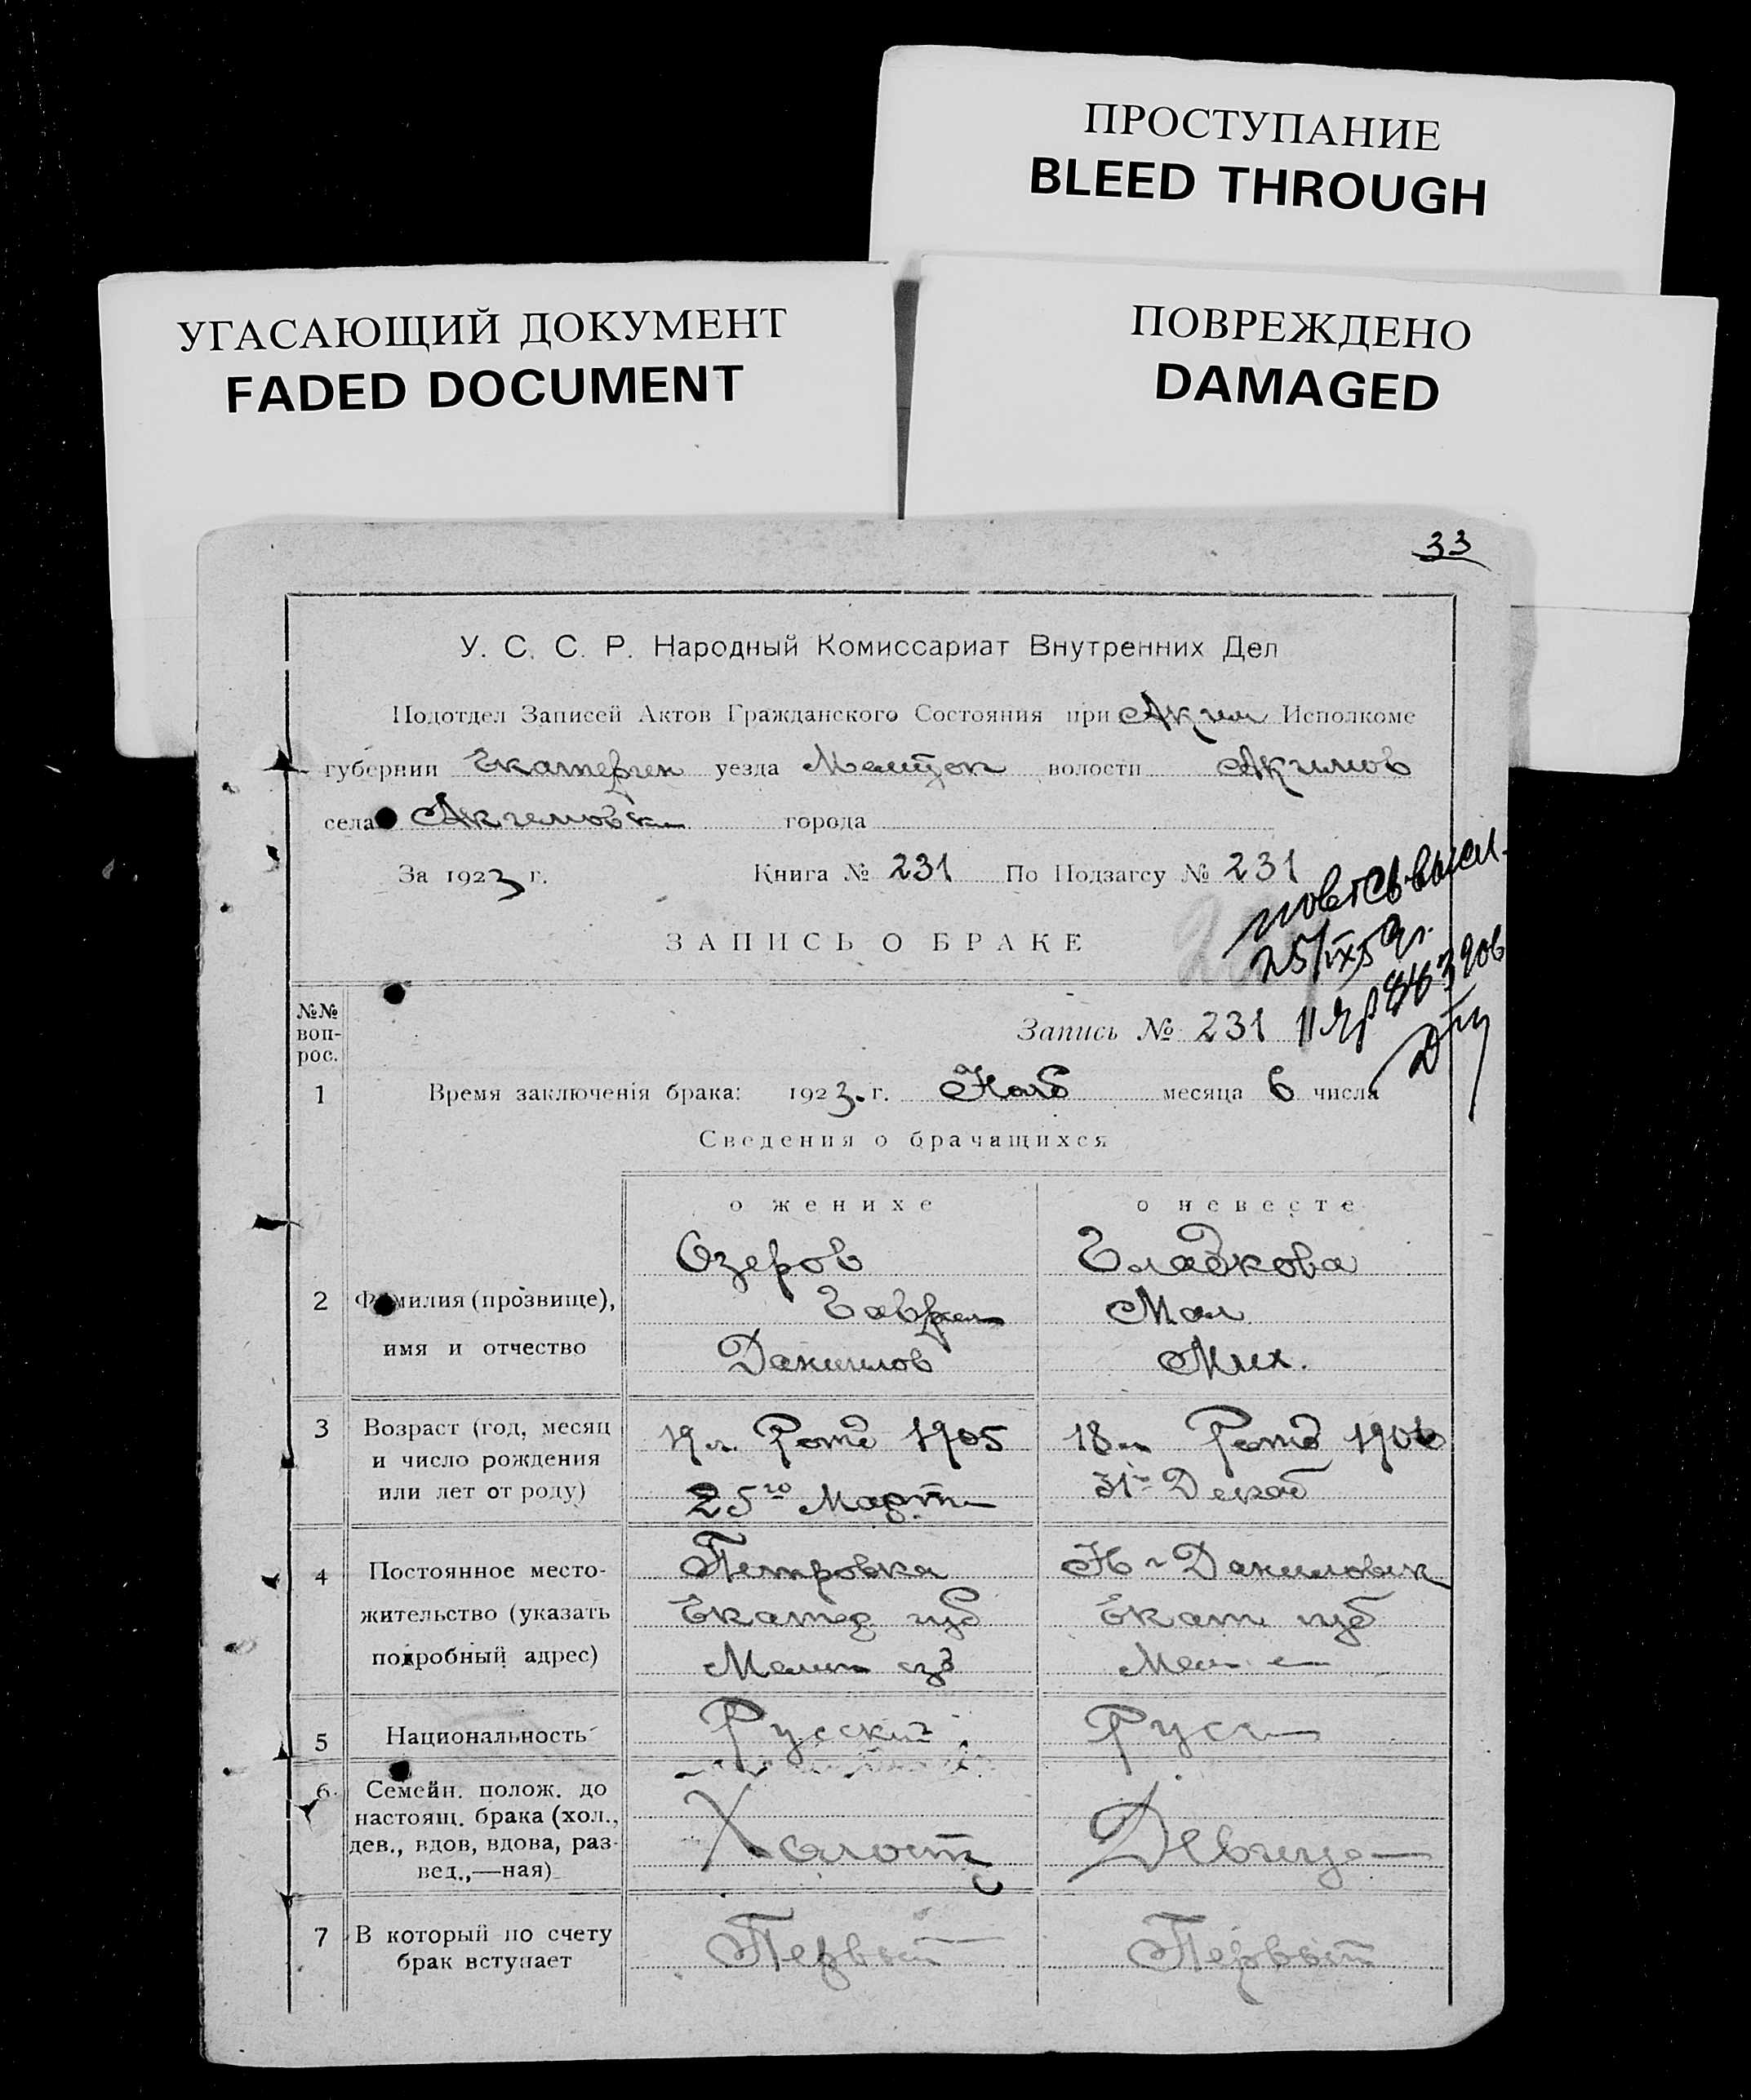 ПРОСТУПАНИЕ
BLEED THROUGH
УГАСАЮЩИЙ ДОКУМЕНТ
FADED DOCUMENT
ПОВРЕЖДЕНО
DAMAGED
33
У. С. С. Р. Народный Комиссариат Внутренних Дел
Подотдел Записей Актов Гражданского Состояния при Аким Исполкоме
губернии Екатерин уезда Мелитоп волости Акимов
села Акимовки города
За 1923 г. Книга № 231 По Подзагсу № 231
ЗАПИСЬ О БРАКЕ
25/IX 59 г.
№№ воп-рос.
Запись № 231
1 Время заключенія брака: 1923 г. Нояб месяца 6 числа
Сведения о брачащихся
о женихе о невесте
Озеров Гладкова
2 Фамилия (прозвище), Гаврил
имя и отчество Данилов Мих.
3 Возраст (год, месяц и число рождения или лет от роду)
19 л. Рожд 1905 18 л Рожд 1906
25го Марта 31го Декаб
4 Постоянное место-жительство (указать подробный адрес)
Петровка Н-Даниловк
Екатер губ Екат губ
Мелит уезд Мел
5 Национальность Русский Русс
6 Семейн. полож. до
настоящ. брака (хол.,
дев., вдов, вдова, раз-
вед.,—ная)
Холост Девица
7 В который по счету
брак вступает
Первый Первый